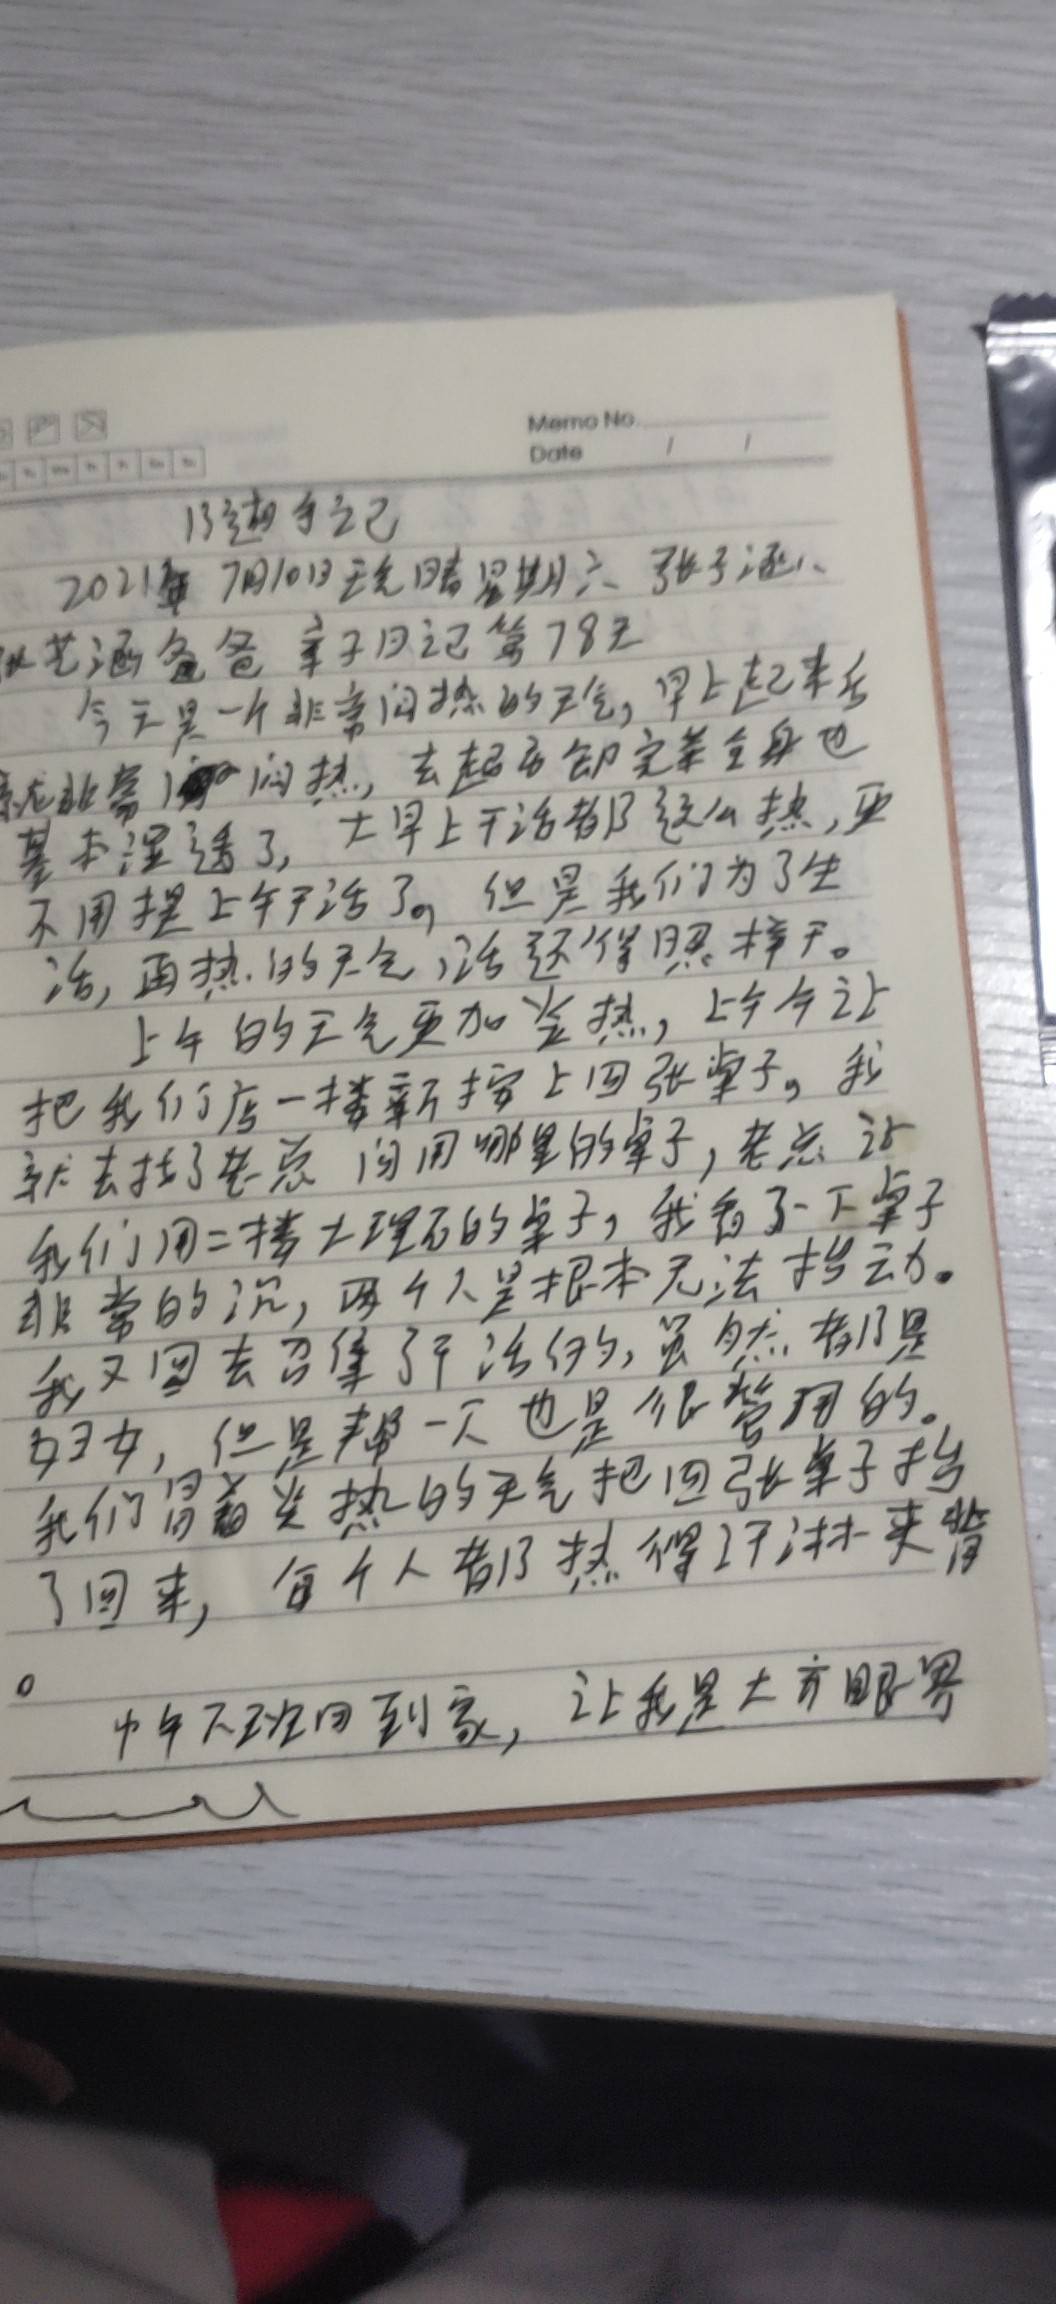 Memo No.
Date / /
随手记
2021年 7月10日天气晴星期六 张子涵、
张艺涵爸爸 亲子日记第78天
今天是一个非常闷热的天气,早上起来后
就非常闷热,去超市卸完菜全身也
基本湿透了,大早上干活都这么热,更
不用提上午干活了。但是我们为了生
活,再热的天气,活还得照样干。
上午的天气更加炎热,上午今让
把我们店一楼新按上四张桌子。我
就去找了老总问用哪里的桌子,老总让
我们用二楼大理石的桌子,我看了一下桌子
非常的沉,两个人是根本无法抬动。
我又回去召集了干活的,虽然都是
妇女,但是帮一下也是很管用的。
我们冒着炎热的天气把四张桌子抬
了回来,每个人都热得汗淋夹背
。
中午下班回到家,让我是大开眼界